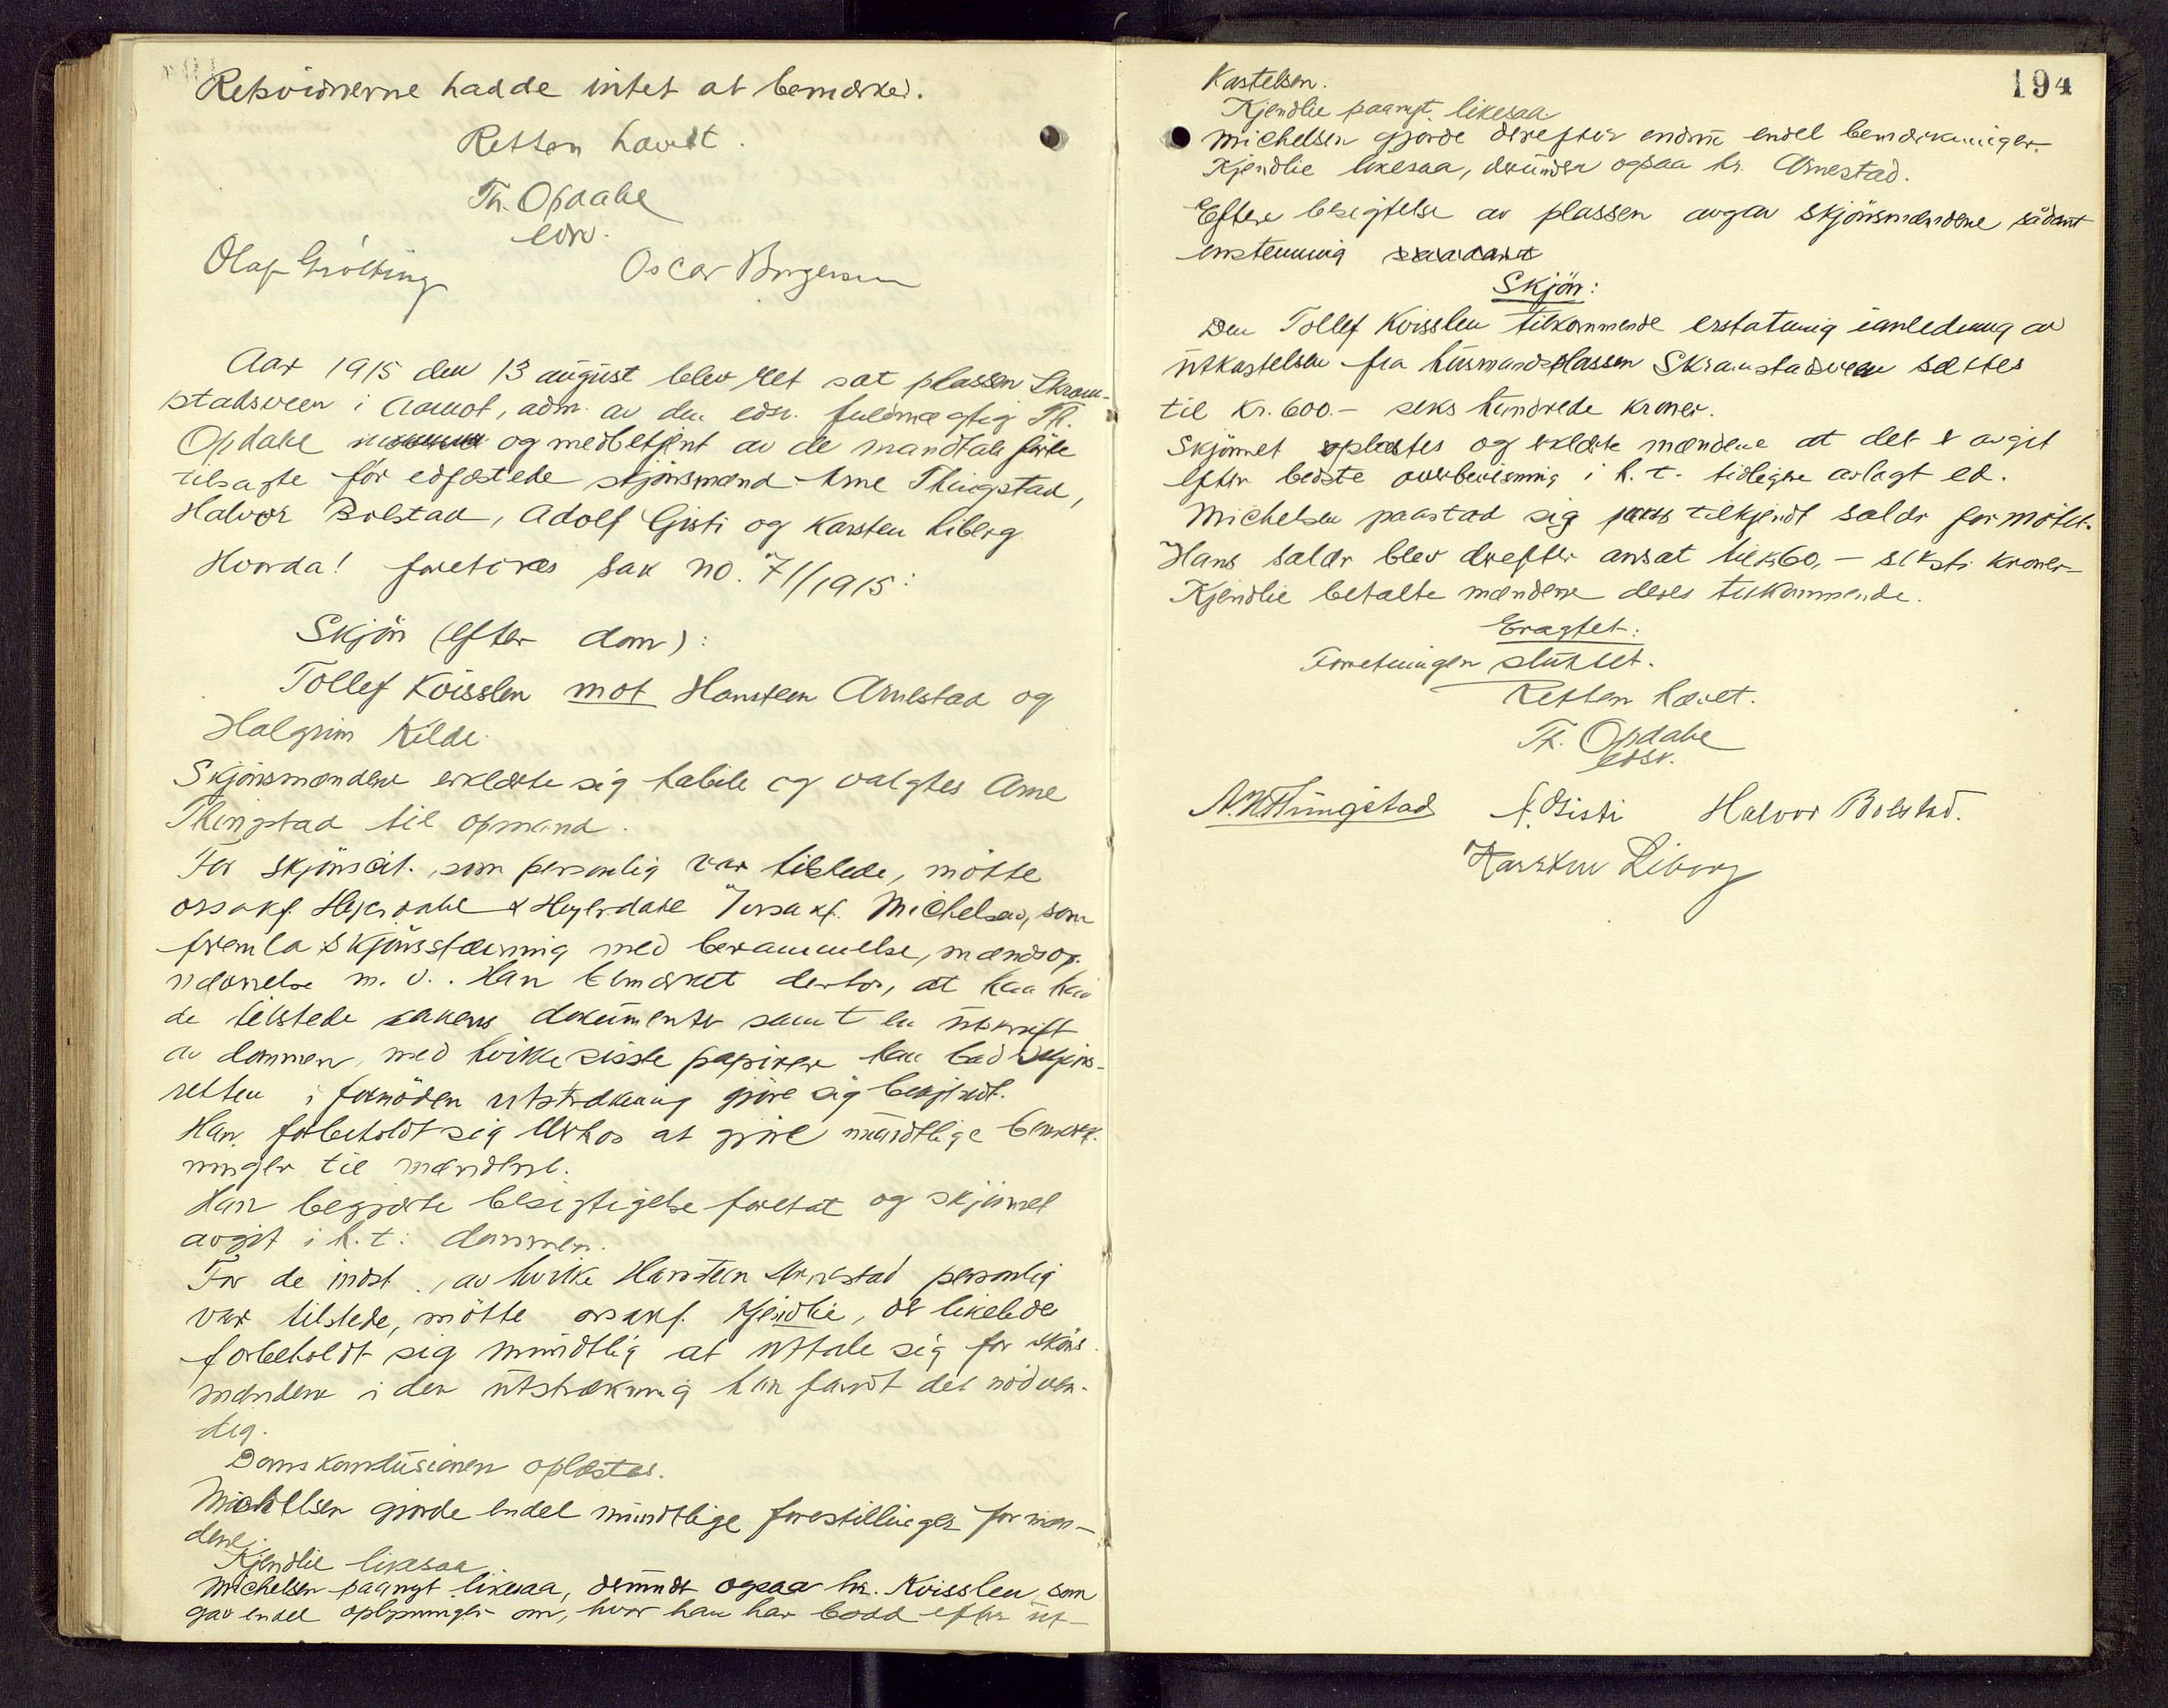 Rekvirenterne hadde intet at bemærke.
Retten hævet.
Th. Opdahl
edsv.
Olaf Grötting Oscar Borgersen
Aar 1915 den 13 august blev ret sat plassen Skram-
stadsveen i Aamot, adm. av den edsv. fuldmægtig Th.
Opdahl og medbetjent av de mandtalsförte
tilsagte för edfæstede skjönsmænd Arne Thingstad,
Halvor Bolstad, Adolf Gisti og Karsten Liberg
Hvorda! foretoges sak no. 71/1915:
Skjön (efter dom):
Tollef Kvisslen mot Hanstein Arnestad og
Halgrim Kilde.
Skjönsmændene erklærte sig habile og valgtes Arne
Thingstad til opmand.
For skjönscit. som personlig var tilstede, mötte
orsakf. Heyerdahl & Heyerdahl v/orsakf. Michelsen, som
fremla skjönsstævning med berammelse, mændsop-
nævnelse m. v. Han bemærket derhos, at han hav-
de tilstede sakens dokumenter samt en utskrift
av dommen, med hvilke sisste papirer han bad skjöns-
retten i fornöden utstrækning gjöre sig bekjendt.
Han forbeholdt sig derhos at gjöre mundtlige bemærk-
ninger til mændene.
Han begjærte besigtigelse foretat og skjönnet
avgit i h.t. dommen.
For de indst., av hvilke Hanstein Arnestad personlig
var tilstede, mötte orsakf. Kjendlie, der likeledes
forbeholdt sig mundtlig at uttale sig for skjöns-
mændene i den utstrækning han fandt det nödven-
dig.
Domskonklusionen oplæstes.
Michelsen gjorde endel mundtlige forestillinger for mæn-
dene.
Kjendlie likesaa.
Michelsen paanyt likesaa, derunder ogsaa hr. Kvisslen, som
gav endel oplysninger om, hvor han har bodd efter ut-
194
kastelsen.
Kjendlie paanyt likesaa
Michelsen gjorde derefter endnu endel bemærkninger.
Kjendlie likesaa, derunder ogsaa hr. Arnestad.
Efter besigtelse av plassen avgav skjönsmændene sådant
enstemmig saadant
Skjön:
Den Tollef Kvisslen tilkommende erstatning ianledning av
utkastelsen fra husmandsplassen Skramstadsveen sættes
til kr. 600.- seks hundrede kroner.
Skjönnet oplæstes og erklærte mændene at det er avgit
efter bedste overbevisning i h. t. tidligere avlagt ed.
Michelsen paastod sig tilkjendt salær for mötet.
Hans salær blev derefter ansat til kr 60,- seksti kroner-
Kjendlie betalte mændene deres tilkommende.
Eragtet:
Forretningen sluttet.
Retten hævet.
Th. Opdahl
edsv.
A. Thingstad A. Gisti Halvor Bolstad.
Karsten Liberg